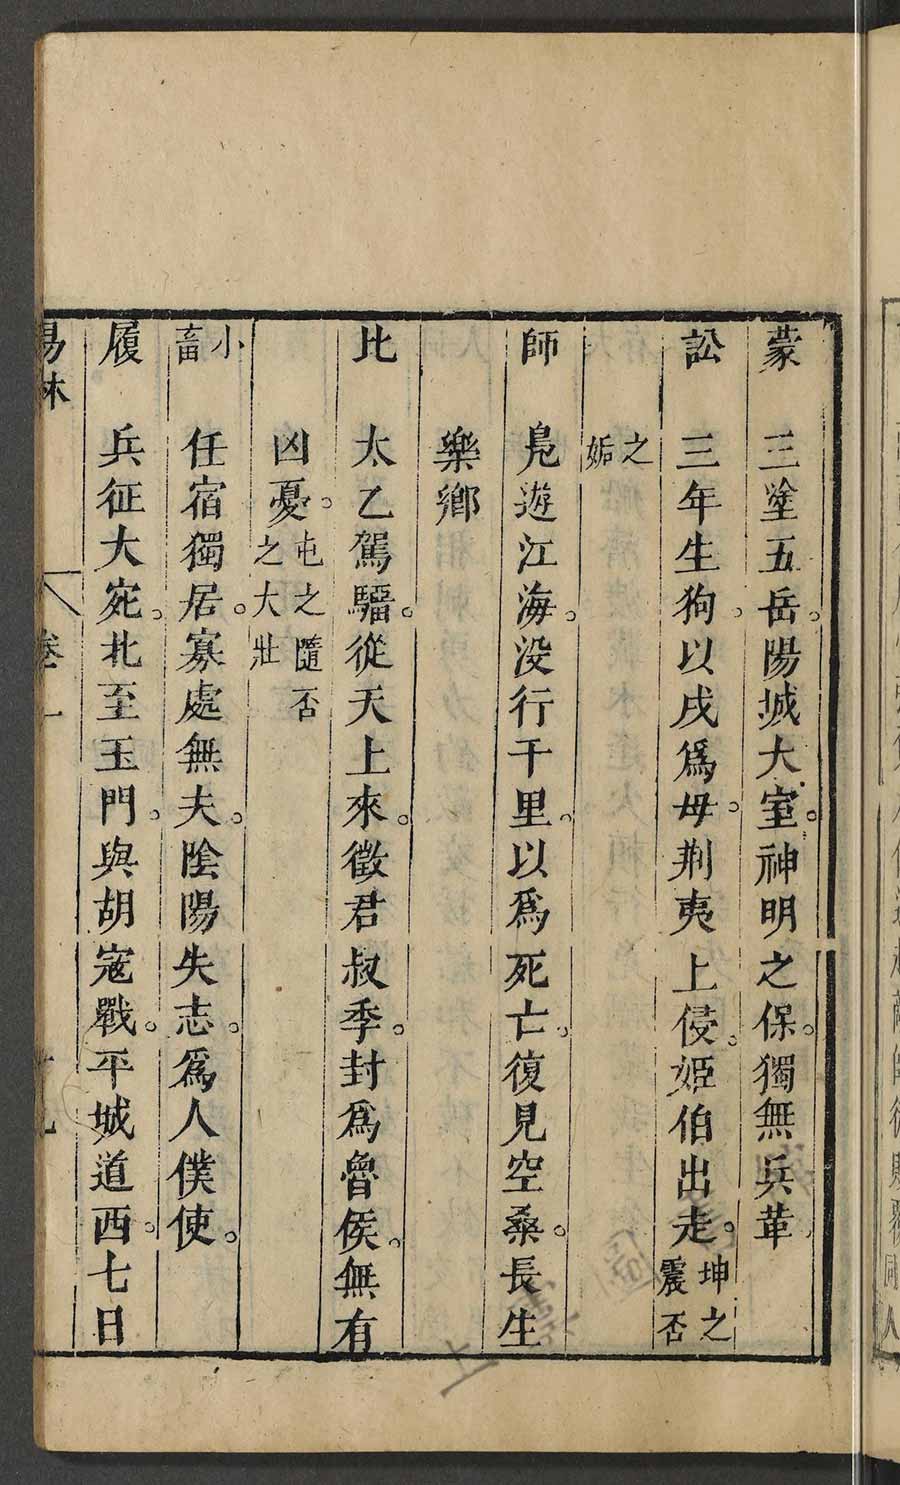 蒙 三塗五岳。陽城大室。神明之保。獨無兵革
訟 三年生狗。以戌爲母。荆夷上侵。姬伯出走。坤之震否
之姤
師 鳧遊江海。没行千里。以爲死亡。復見空桑。長生
樂鄉
比 太乙駕騮。從天上來。徵君叔季。封爲魯侯。無有
凶憂。屯之隨否之大壯
小畜 任宿獨居。寡處無夫。陰陽失志。爲人僕使。
履 兵征大宛。北至玉門。與胡寇戰。平城道西。七日
易林 卷一